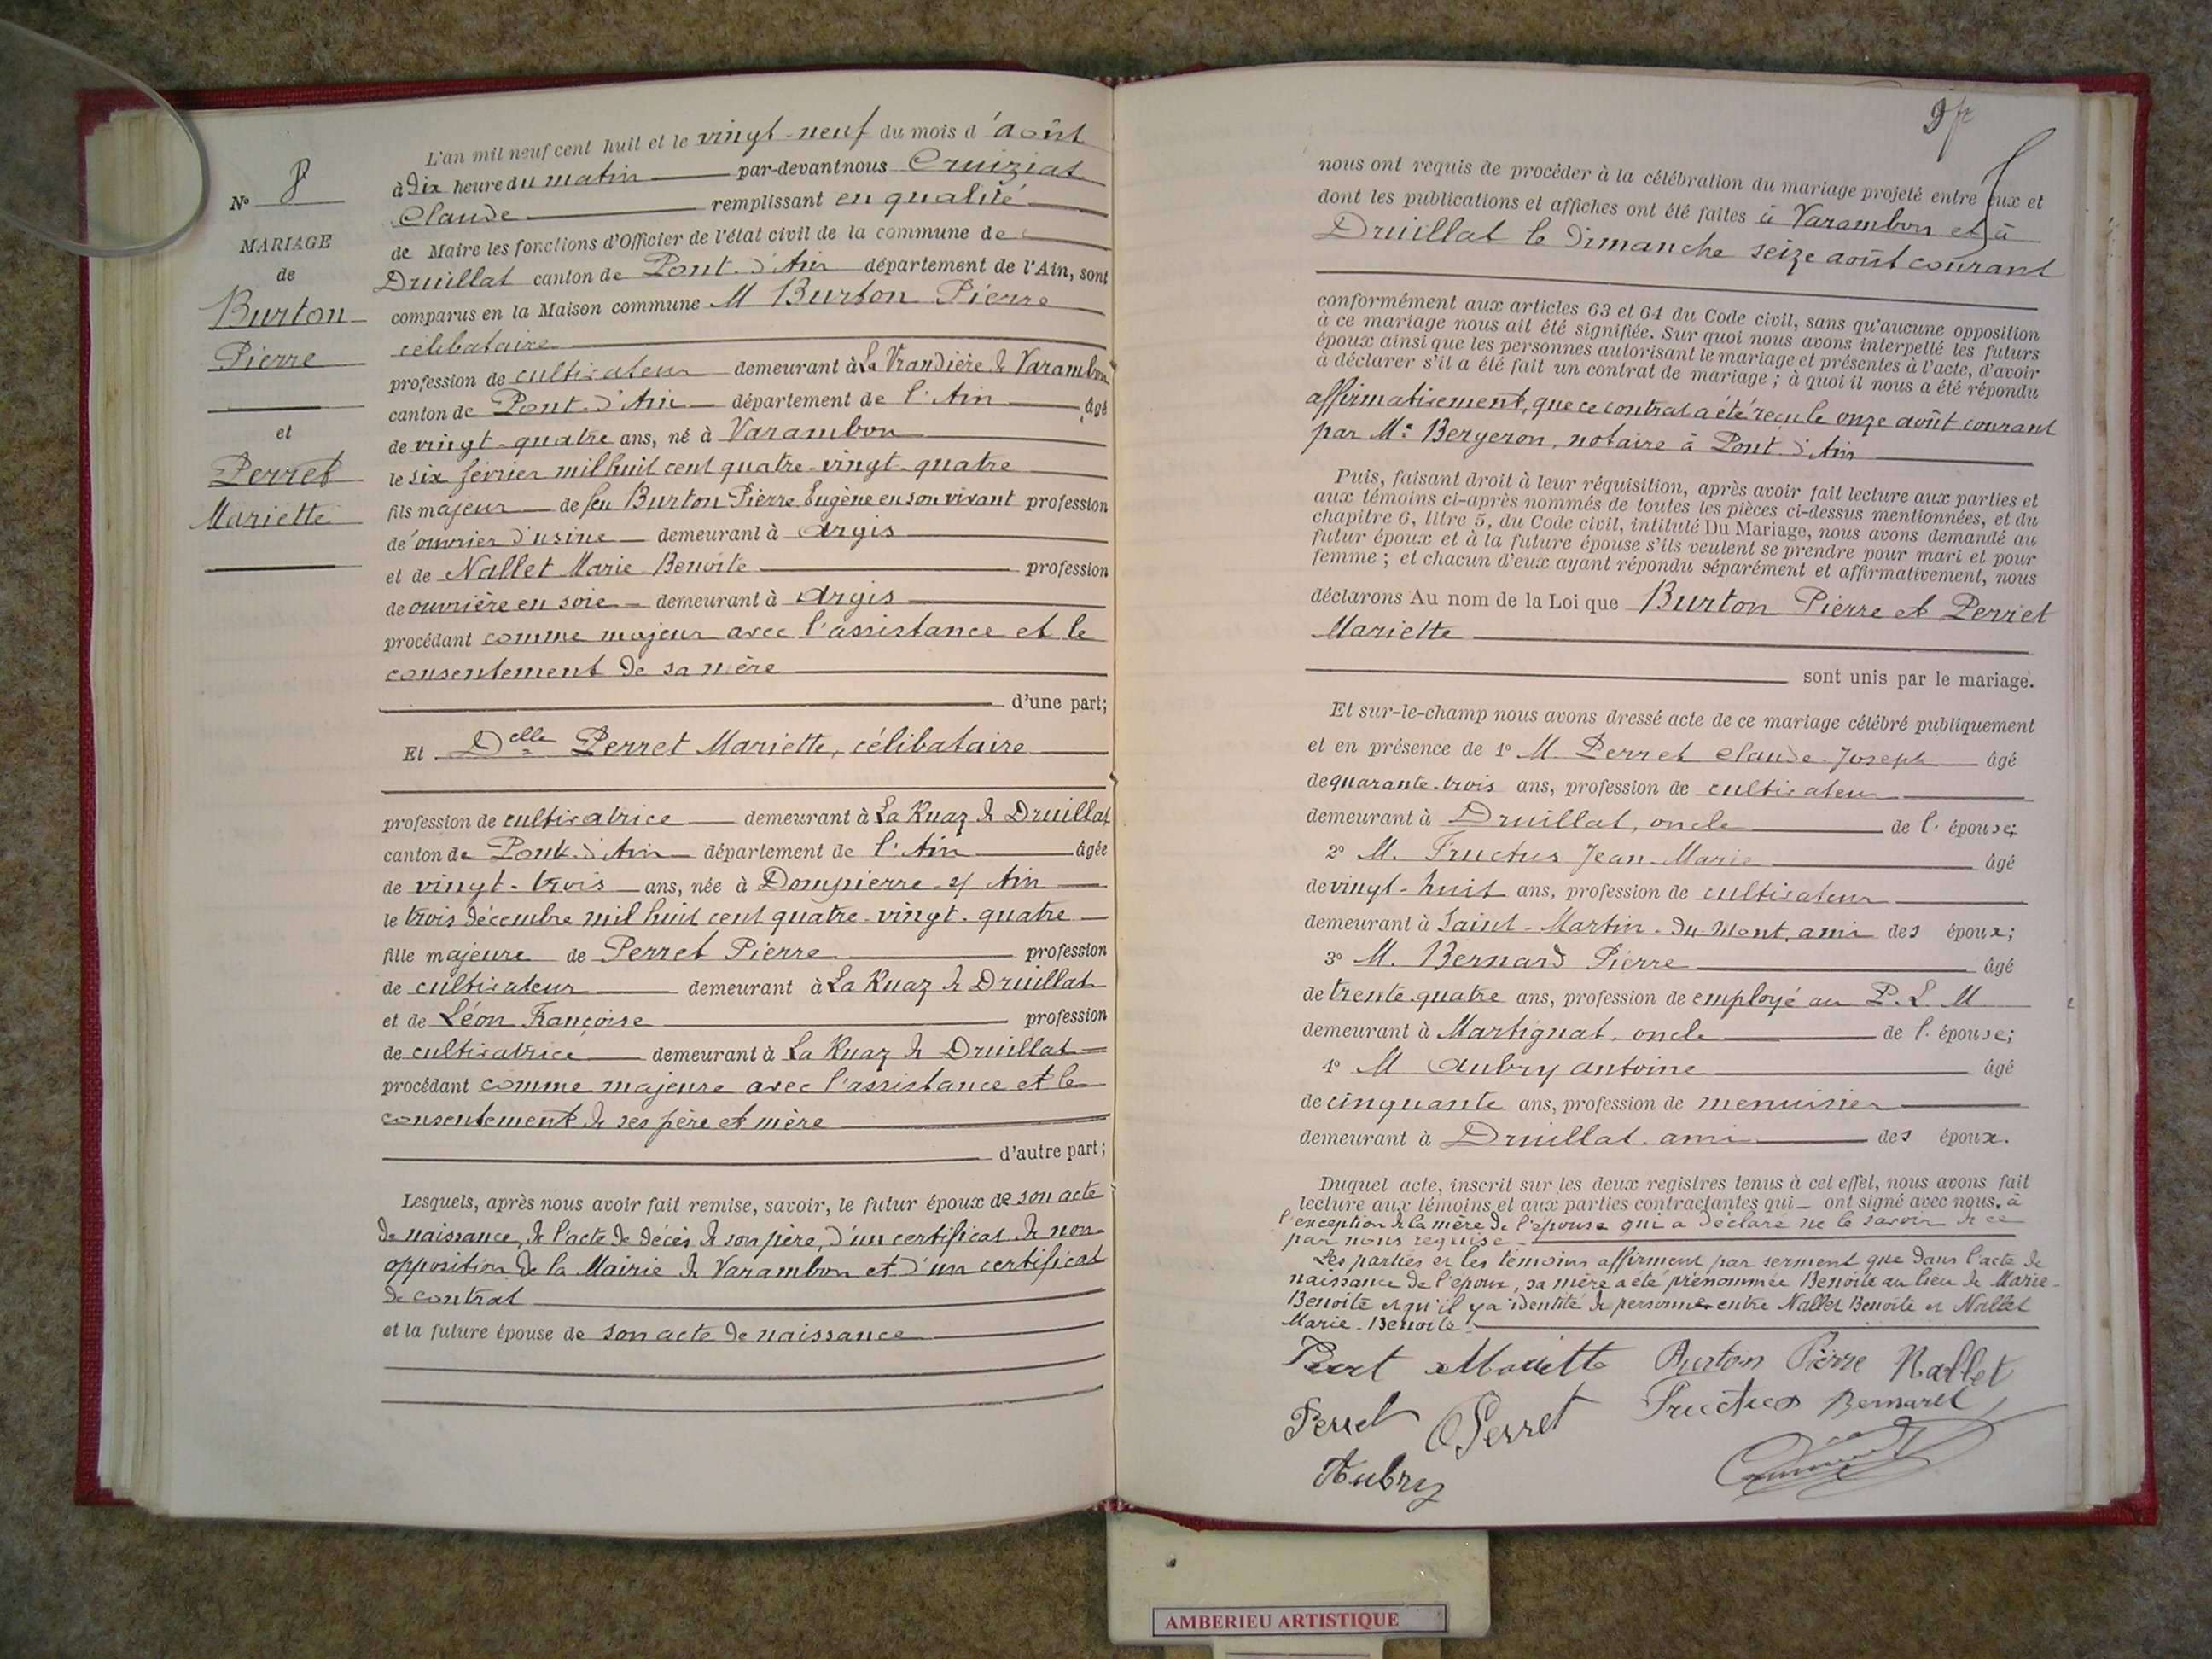 N° 8
MARIAGE
de
Burton
Pierre
et
Perret
Mariette
L'an mil neuf cent huit et le vingt-neuf du mois d'août
à dix heure du matin par-devant nous Cruiziat
Claude remplissant en qualité
de Maire les fonctions d'Officier de l'état civil de la commune de
Druillat canton de Pont-d'Ain département de l'Ain, sont
comparus en la Maison commune M Burton Pierre
célibataire
profession de cultivateur demeurant à La Vrandière de Varambon
canton de Pont-d'Ain département de l'Ain âgé
de vingt-quatre ans, né à Varambon
le six février mil huit cent quatre-vingt-quatre
fils majeur de feu Burton Pierre Eugène en son vivant profession
de ouvrier d'usine demeurant à Argis
et de Nallet Marie-Benoîte profession
de ouvrière en soie demeurant à Argis
procédant comme majeur avec l'assistance et le
consentement de sa mère
d'une part;
Et Delle Perret Mariette, célibataire
profession de cultivatrice demeurant à La Ruaz de Druillat
canton de Pont-d'Ain département de l'Ain âgée
de vingt-trois ans, née à Dompierre s/ Ain
le trois décembre mil huit cent quatre-vingt-quatre
fille majeure de Perret Pierre profession
de cultivateur demeurant à La Ruaz de Druillat
et de Léon Françoise profession
de cultivatrice demeurant à La Ruaz de Druillat
procédant comme majeure avec l'assistance et le
consentement de ses père et mère
d'autre part;
Lesquels, après nous avoir fait remise, savoir, le futur époux de son acte
de naissance, de l'acte de décès de son père, d'un certificat de non
opposition de la Mairie de Varambon et d'un certificat
de contrat
et la future épouse de son acte de naissance
nous ont requis de procéder à la célébration du mariage projeté entre eux et
dont les publications et affiches ont été faites à Varambon et à
Druillat le dimanche seize août courant
conformément aux articles 63 et 64 du Code civil, sans qu'aucune opposition
à ce mariage nous ait été signifiée. Sur quoi nous avons interpellé les futurs
époux ainsi que les personnes autorisant le mariage et présentes à l'acte, d'avoir
à déclarer s'il a été fait un contrat de mariage; à quoi il nous a été répondu
affirmativement, que ce contrat a été reçu le onze août courant
par Me Bergeron, notaire à Pont-d'Ain
Puis, faisant droit à leur réquisition, après avoir fait lecture aux parties et
aux témoins ci-après nommés de toutes les pièces ci-dessus mentionnées, et du
chapitre 6, titre 5, du Code civil, intitulé Du Mariage, nous avons demandé au
futur époux et à la future épouse s'ils veulent se prendre pour mari et pour
femme; et chacun d'eux ayant répondu séparément et affirmativement, nous
déclarons Au nom de la Loi que Burton Pierre et Perret
Mariette
sont unis par le mariage.
Et sur-le-champ nous avons dressé acte de ce mariage célébré publiquement
et en présence de 1° M. Perret Claude-Joseph âgé
de quarante-trois ans, profession de cultivateur
demeurant à Druillat, oncle de l'épouse;
2° M. Fructus Jean-Marie âgé
de vingt-huit ans, profession de cultivateur
demeurant à Saint-Martin-du-Mont, ami des époux;
3° M. Bernard Pierre âgé
de trente-quatre ans, profession de employé au P.L.M
demeurant à Martignat, oncle de l'épouse;
4° M Aubry Antoine âgé
de cinquante ans, profession de menuisier
demeurant à Druillat, ami des époux.
Duquel acte, inscrit sur les deux registres tenus à cet effet, nous avons fait
lecture aux témoins et aux parties contractantes qui ont signé avec nous, à
l'exception de la mère de l'épouse qui a déclaré ne le savoir de ce
par nous requise.
Les parties et les témoins affirment par serment que dans l'acte de
naissance de l'époux, sa mère a été prénommée Benoîte au lieu de Marie-
Benoîte et qu'il y a identité de personne entre Nallet Benoîte et Nallet
Marie-Benoîte.
Perret Mariette Burton Pierre Nallet
Perret Perret Fructus Bernard
Aubry
AMBERIEU ARTISTIQUE